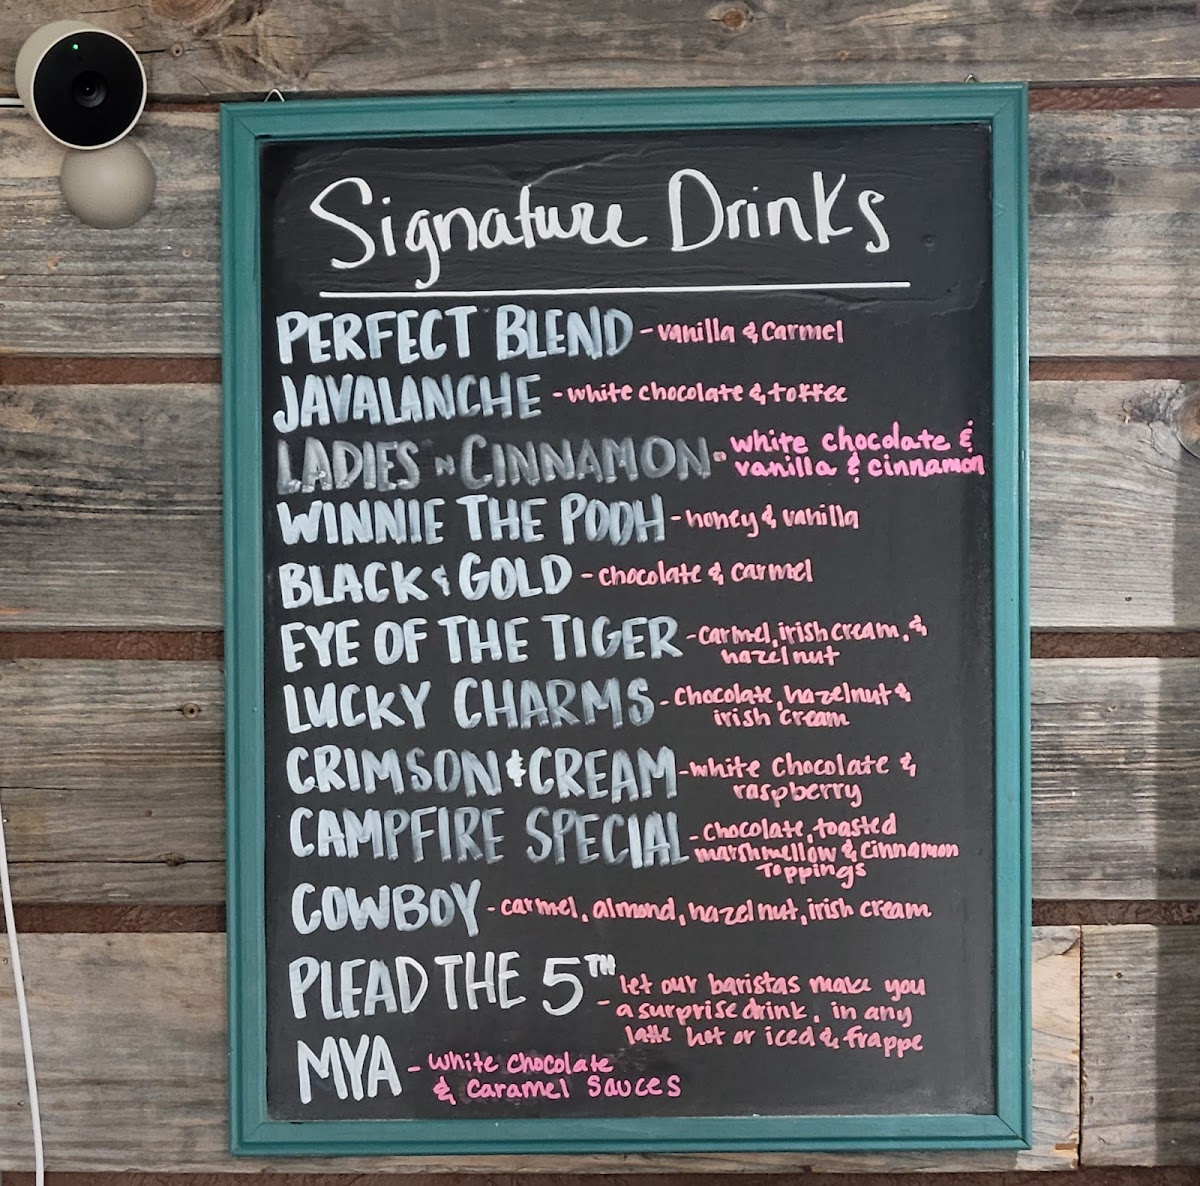 Signature Drinks
PERFECT BLEND - vanilla & carmel
JAVALANCHE - white chocolate & toffee
LADIES N CINNAMON - white chocolate &
vanilla & cinnamon
WINNIE THE POOH - honey & vanilla
BLACK & GOLD - chocolate & carmel
EYE OF THE TIGER - carmel, irish cream, &
hazelnut
LUCKY CHARMS - chocolate, hazelnut &
irish cream
CRIMSON & CREAM - white chocolate &
raspberry
CAMPFIRE SPECIAL - chocolate, toasted
marshmellow & cinnamon
toppings
COWBOY - carmel, almond, hazelnut, irish cream
PLEAD THE 5TH - let our baristas make you
a surprise drink, in any
latte hot or iced & frappe
MYA - white chocolate
& caramel sauces